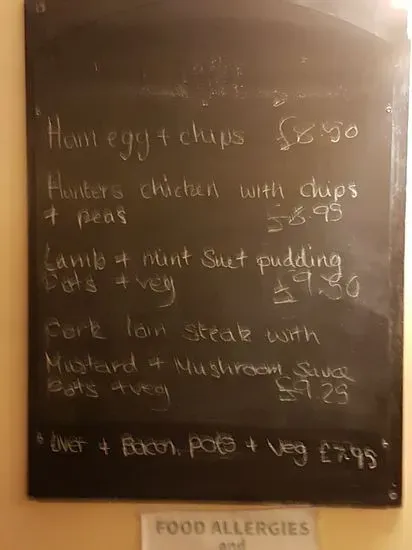 Ham egg + chips £8.50
Hunters chicken with chips
+ peas £8.95
Lamb + mint Suet pudding
Pots + veg £9.50
Pork loin steak with
Mustard + Mushroom sauce
Pots + veg £9.25
Liver + Bacon, pots + veg £7.95
FOOD ALLERGIES
and